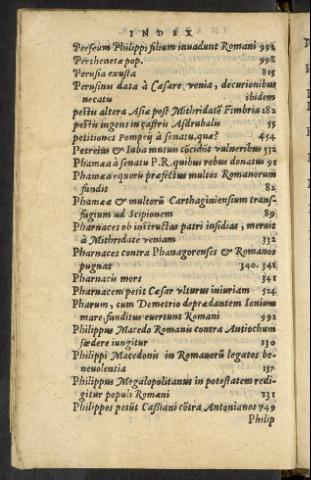 INDEX
Perseum Philippi filium inuadunt Romani 992
Perthenetæ pop. 998
Perusia exusta 815
Perusinu data à Cæsare, venia, decurionibus
necatu ibidem
pestis altera Asiæ post Mithridatē Fimbria 182
pestis ingens in castris Asdrubalis 55
petitiones Pompeij à senatu, quæ? 454
Petreius & Iuba mutuis cōcidūt vulneribus 532
Phamæa à senatu P.R. quibus rebus donatus 91
Phamæa equorū præfectus multos Romanorum
fundit 82
Phamææ & multorū Carthaginiensium trans-
fugium ad Scipionem 89
Pharnaces ob instructas patri insidias, meruit
à Mithridate veniam 332
Pharnaces contra Phanagorenses & Romanos
pugnat 340. 341
Pharnacis mors 341
Pharnacem petit Cæsar vlturus iniuriam 524
Pharum, cum Demetrio deprædantem Ionium
mare, funditus euertunt Romani 992
Philippus Macedo Romanis contra Antiochum
fœdere iungitur 130
Philippi Macedonis in Romanorū legatos be-
neuolentia 157
Philippus Megalopolitanus in potestatem redi-
gitur populi Romani 131
Philippos petūt Cassiani cōtra Antonianos 749
Philip